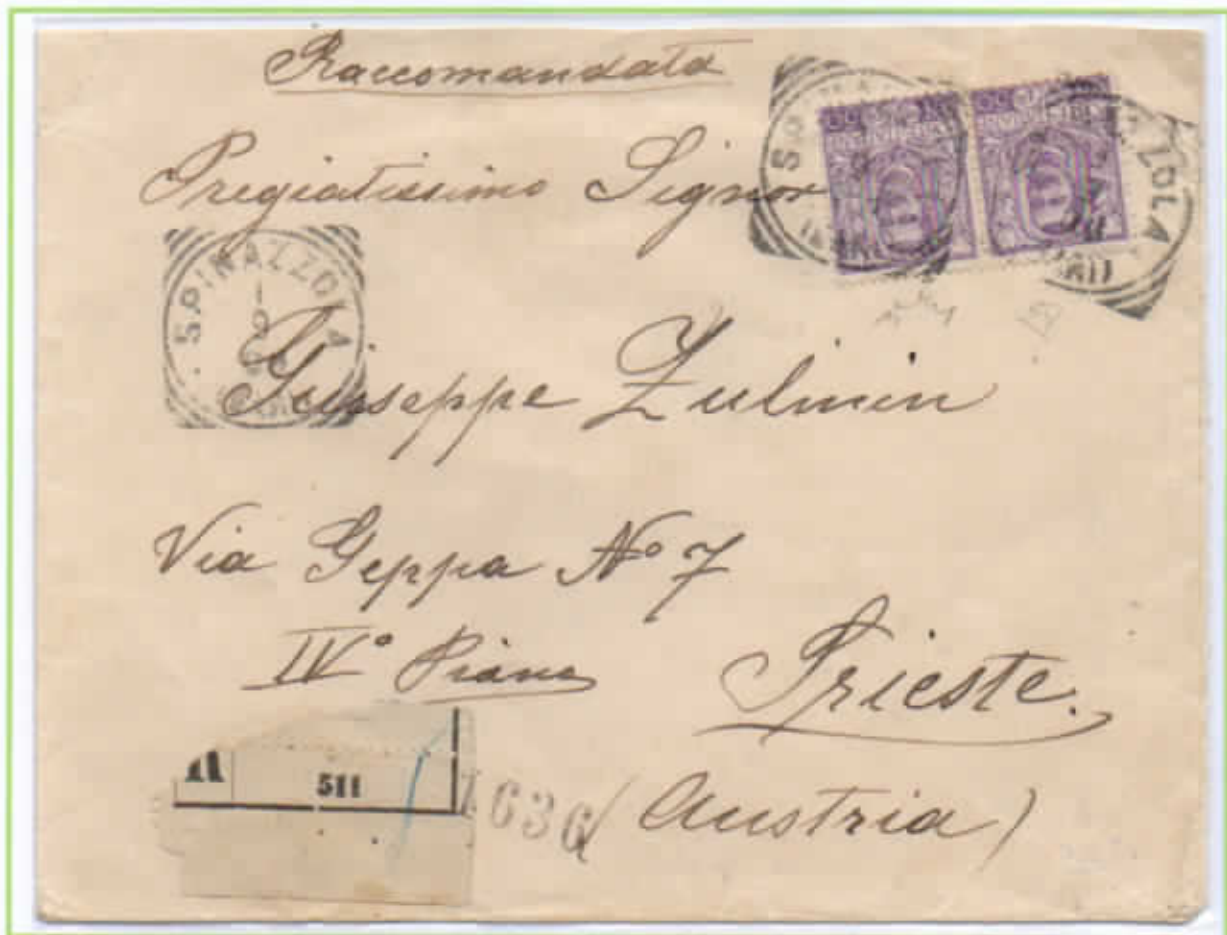 Raccomandata
Pregiatissimo Signor
SPINAZZOLA
Giuseppe Zulmin
Via Geppa Nº 7
IVº Piano
Trieste.
R 511
636
(Austria)